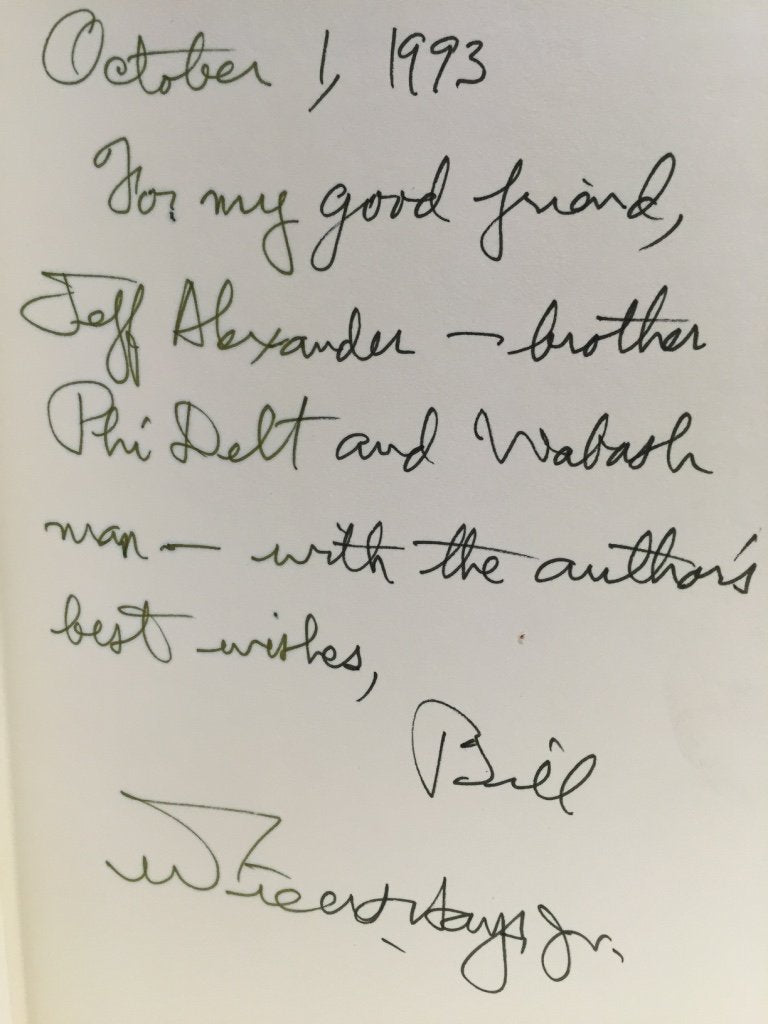 October 1, 1993
For my good friend,
Jeff Alexander — brother
Phi Delt and Wabash
man — with the author's
best wishes,
Bill
Will H. Hays, Jr.